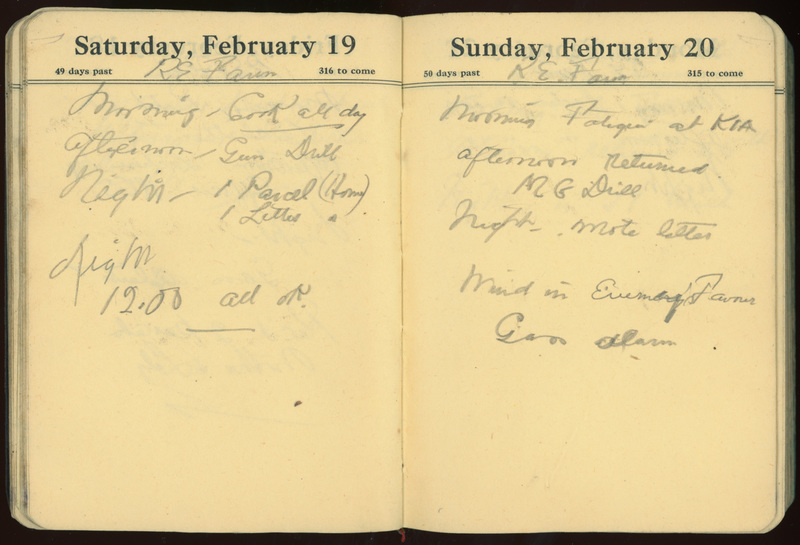 Saturday, February 19
49 days past
316 to come
R.E. Farm
Morning - Cook all day
afternoon - Gun Drill
Night - 1 Parcel (Home)
1 Letter "
Night
12.00 all ok.
Sunday, February 20
50 days past
315 to come
R.E. Farm
Morning Fatigue at
afternoon Returned
M G Drill
Night - wrote letter
Wind in Enemy's Favour
Gass alarm